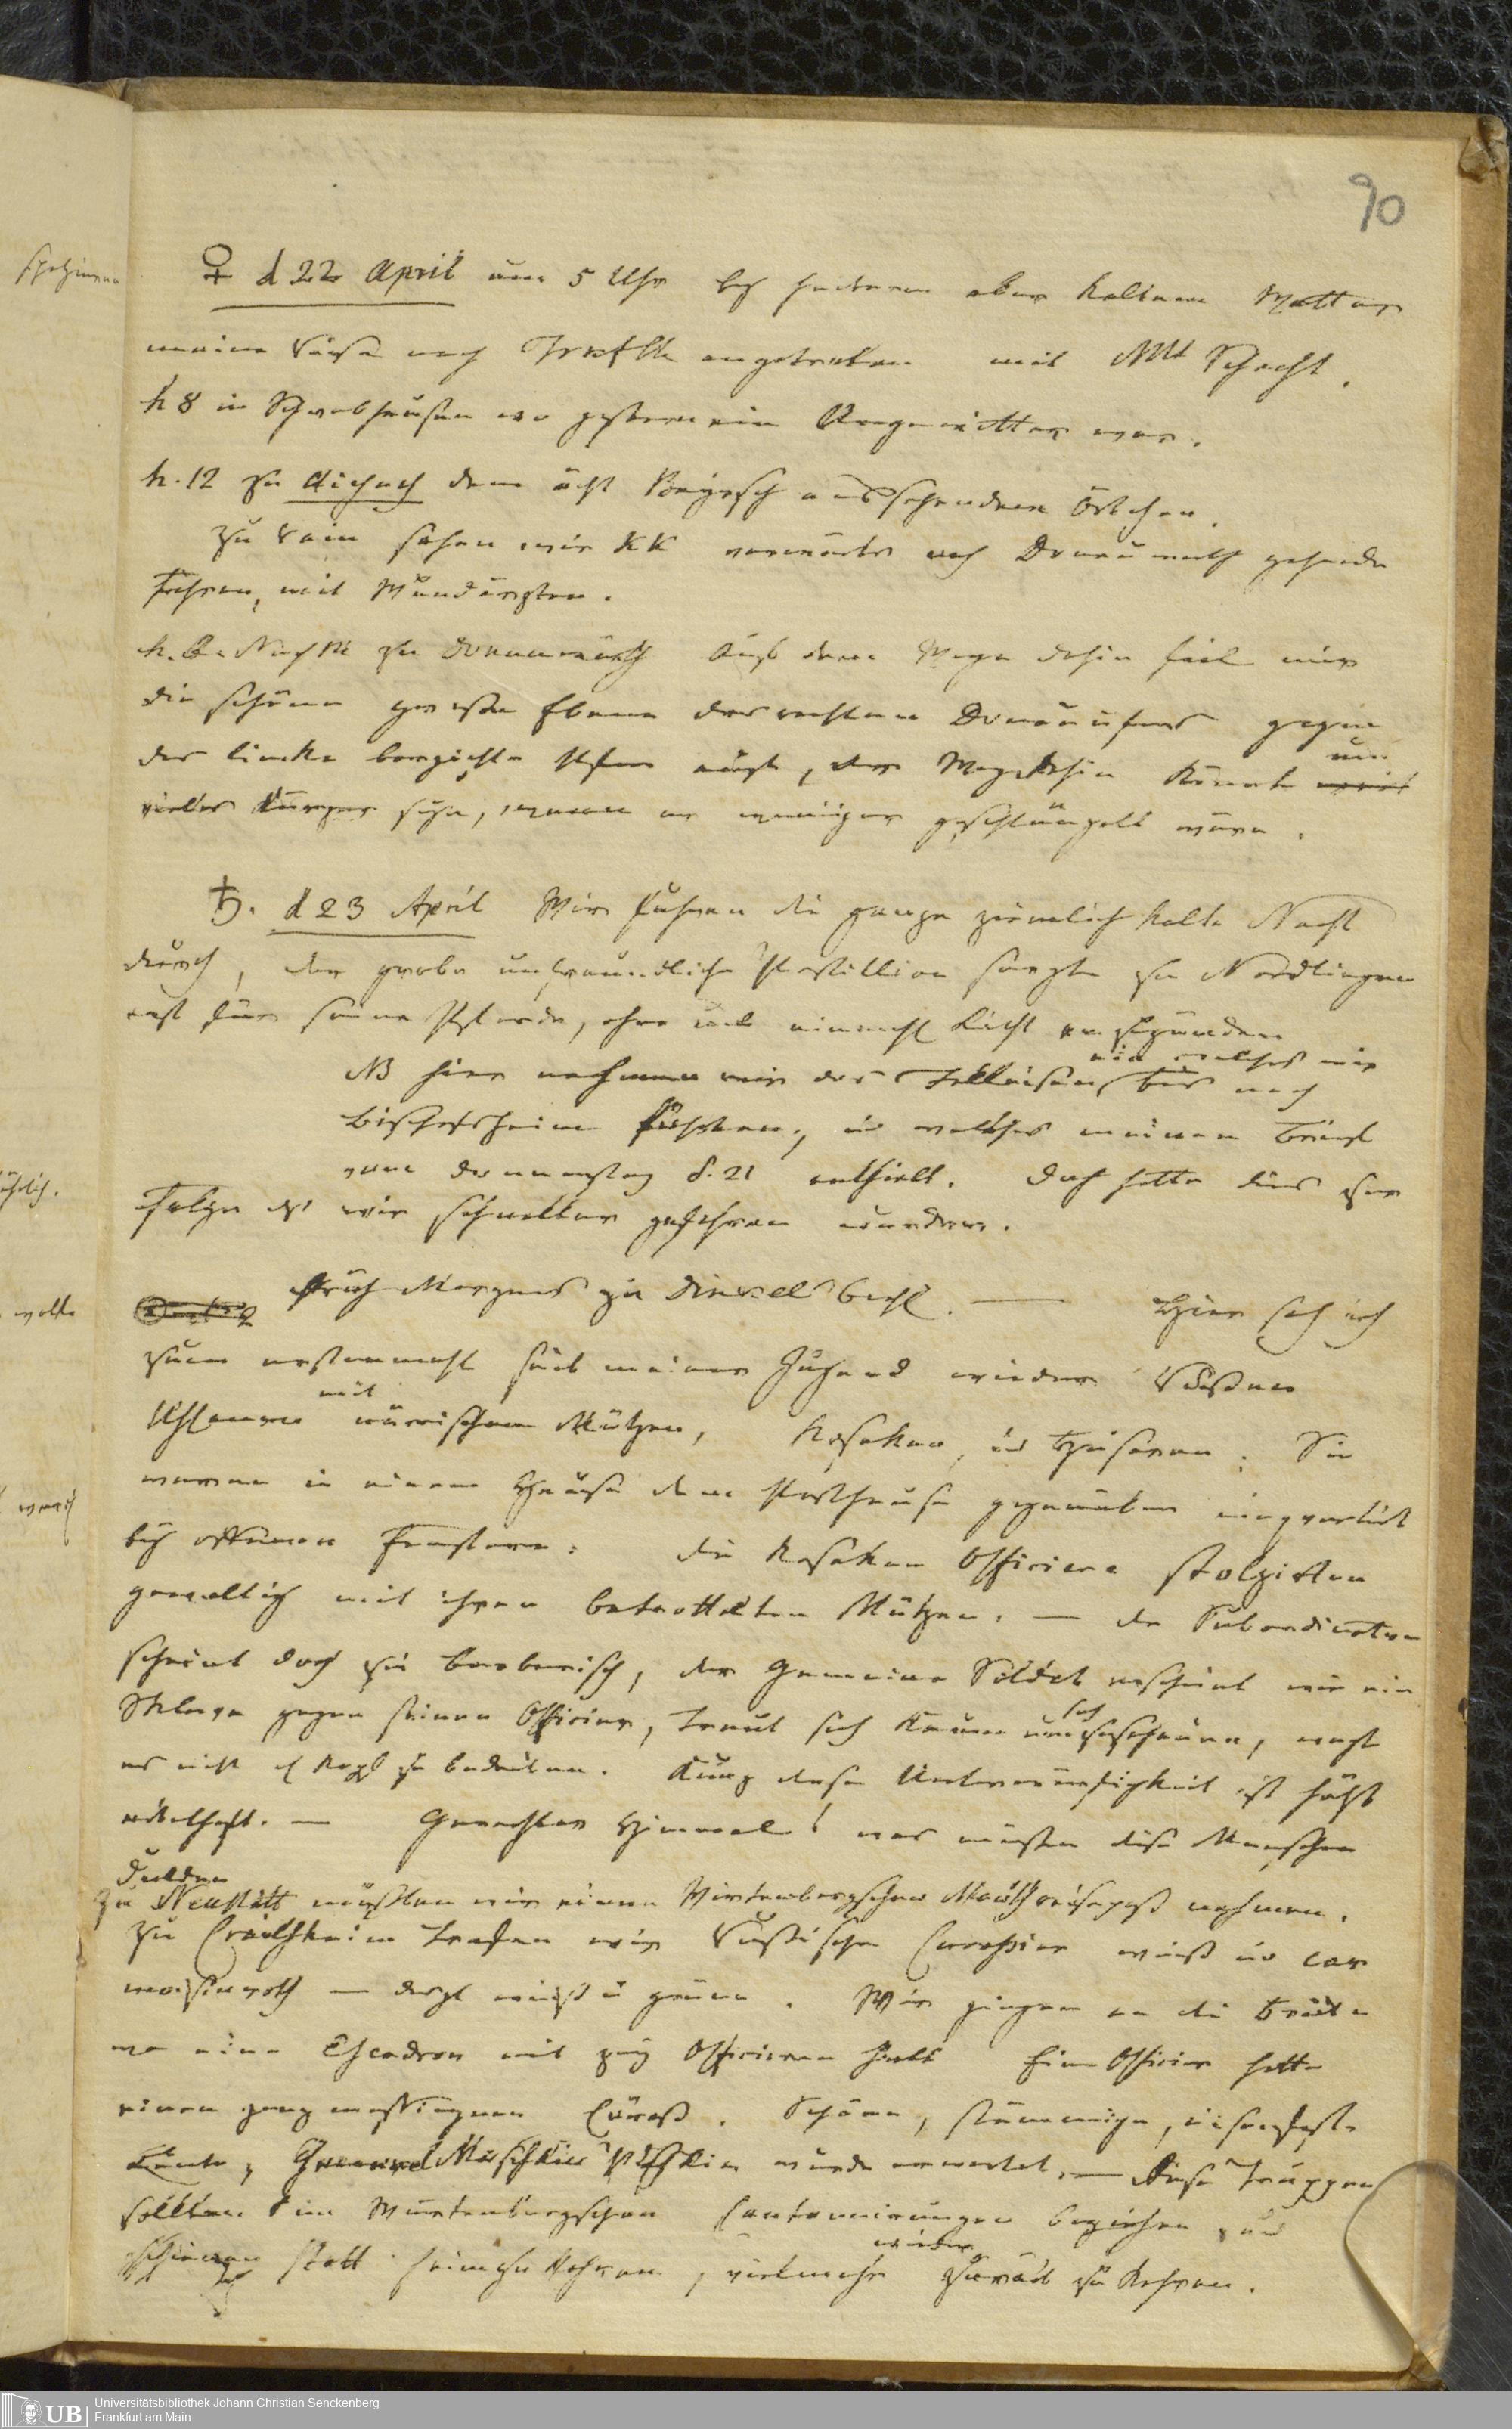 90
♀ d 22 April um 5 Uhr bey heiterem aber kaltem Wetter
meine Reise nach angetreten mit Schacht.
h 8 in Schwabhausen wo gestern ein war.
h. 12 zu Aichach dem ächt Bayrisch aussehenden Örtchen.
zu Rain sahen wir KK vorwärts nach Donauwerth gehende
Fuhren, mit Wundärzten.
h. Nachts zu Donauwerth Auf dem Wege dahin fiel mir
die schöne grosse Ebene des rechten Donauufers gegen
das lincke bergichte Ufer auf, der Weg dahin könnte um
vieles kürzer seyn, wenn er weniger geschlängelt wäre.
♄. d 23 April Wir fuhren die ganze ziemlich kalte Nacht
durch, der grobe unfreundliche Postillion sorgte zu Nördlingen
erst für seine Pferde, ohne uns einmahl Licht anzuzünden
NB hier nahmen wir das Felleisen ein welches wir bis nach
Bischofsheim führten, u welches meinen Brief
vom Donnerstag d. 21 enthielt. Doch hatte dies zur
Folge dß wir schneller gefahren wurden.
früh Morgens zu Dinkelsbühl. — Hier sah ich
zum erstenmahl seit meiner Jugend wieder Russen
Uhlanen mit närrischen Mützen, Kosaken, u Husaren. Sie
waren in einem Hause dem Posthause gegenüber einquartirt
bey offenen Fenstern: die Kosaken Officiere stolzirten
gewaltig mit ihren betrottelten Mützen. — die Subordination
scheint doch zu barbarisch, der gemeine Soldat erscheint wie ein
Sklave gegen seinen Officier, traut sich kaum umzuschauen, wagt
es nicht d Kopf zu bedecken. Kurz diese Unterwürfigkeit ist höchst
ekelhaft. — Gerechter Himmel! was müssen diese Menschen
dulden
Zu Neustätt mußten wir einen Wirtenbergschen Mauthreisepaß nehmen.
Zu Crailsheim trafen wir Russische Curassier weiß u car
moisinroth — dergl weiß u grün. Wir gingen an die Breite
wo eine Escadron mit Officieren hielt Ein Officier hatte
einen ganz messingnen Cüraß. Schöne, stämmige, eisenfeste
Leute, General wurde erwartet. — Diese Truppen
sollten im Würtenbergschen Cantonnirungen beziehen, und
schienen statt heimzukehren, vielmehr wieder zurück zu kehren.
Universitätsbibliothek Johann Christian Senckenberg
Frankfurt am Main
UB